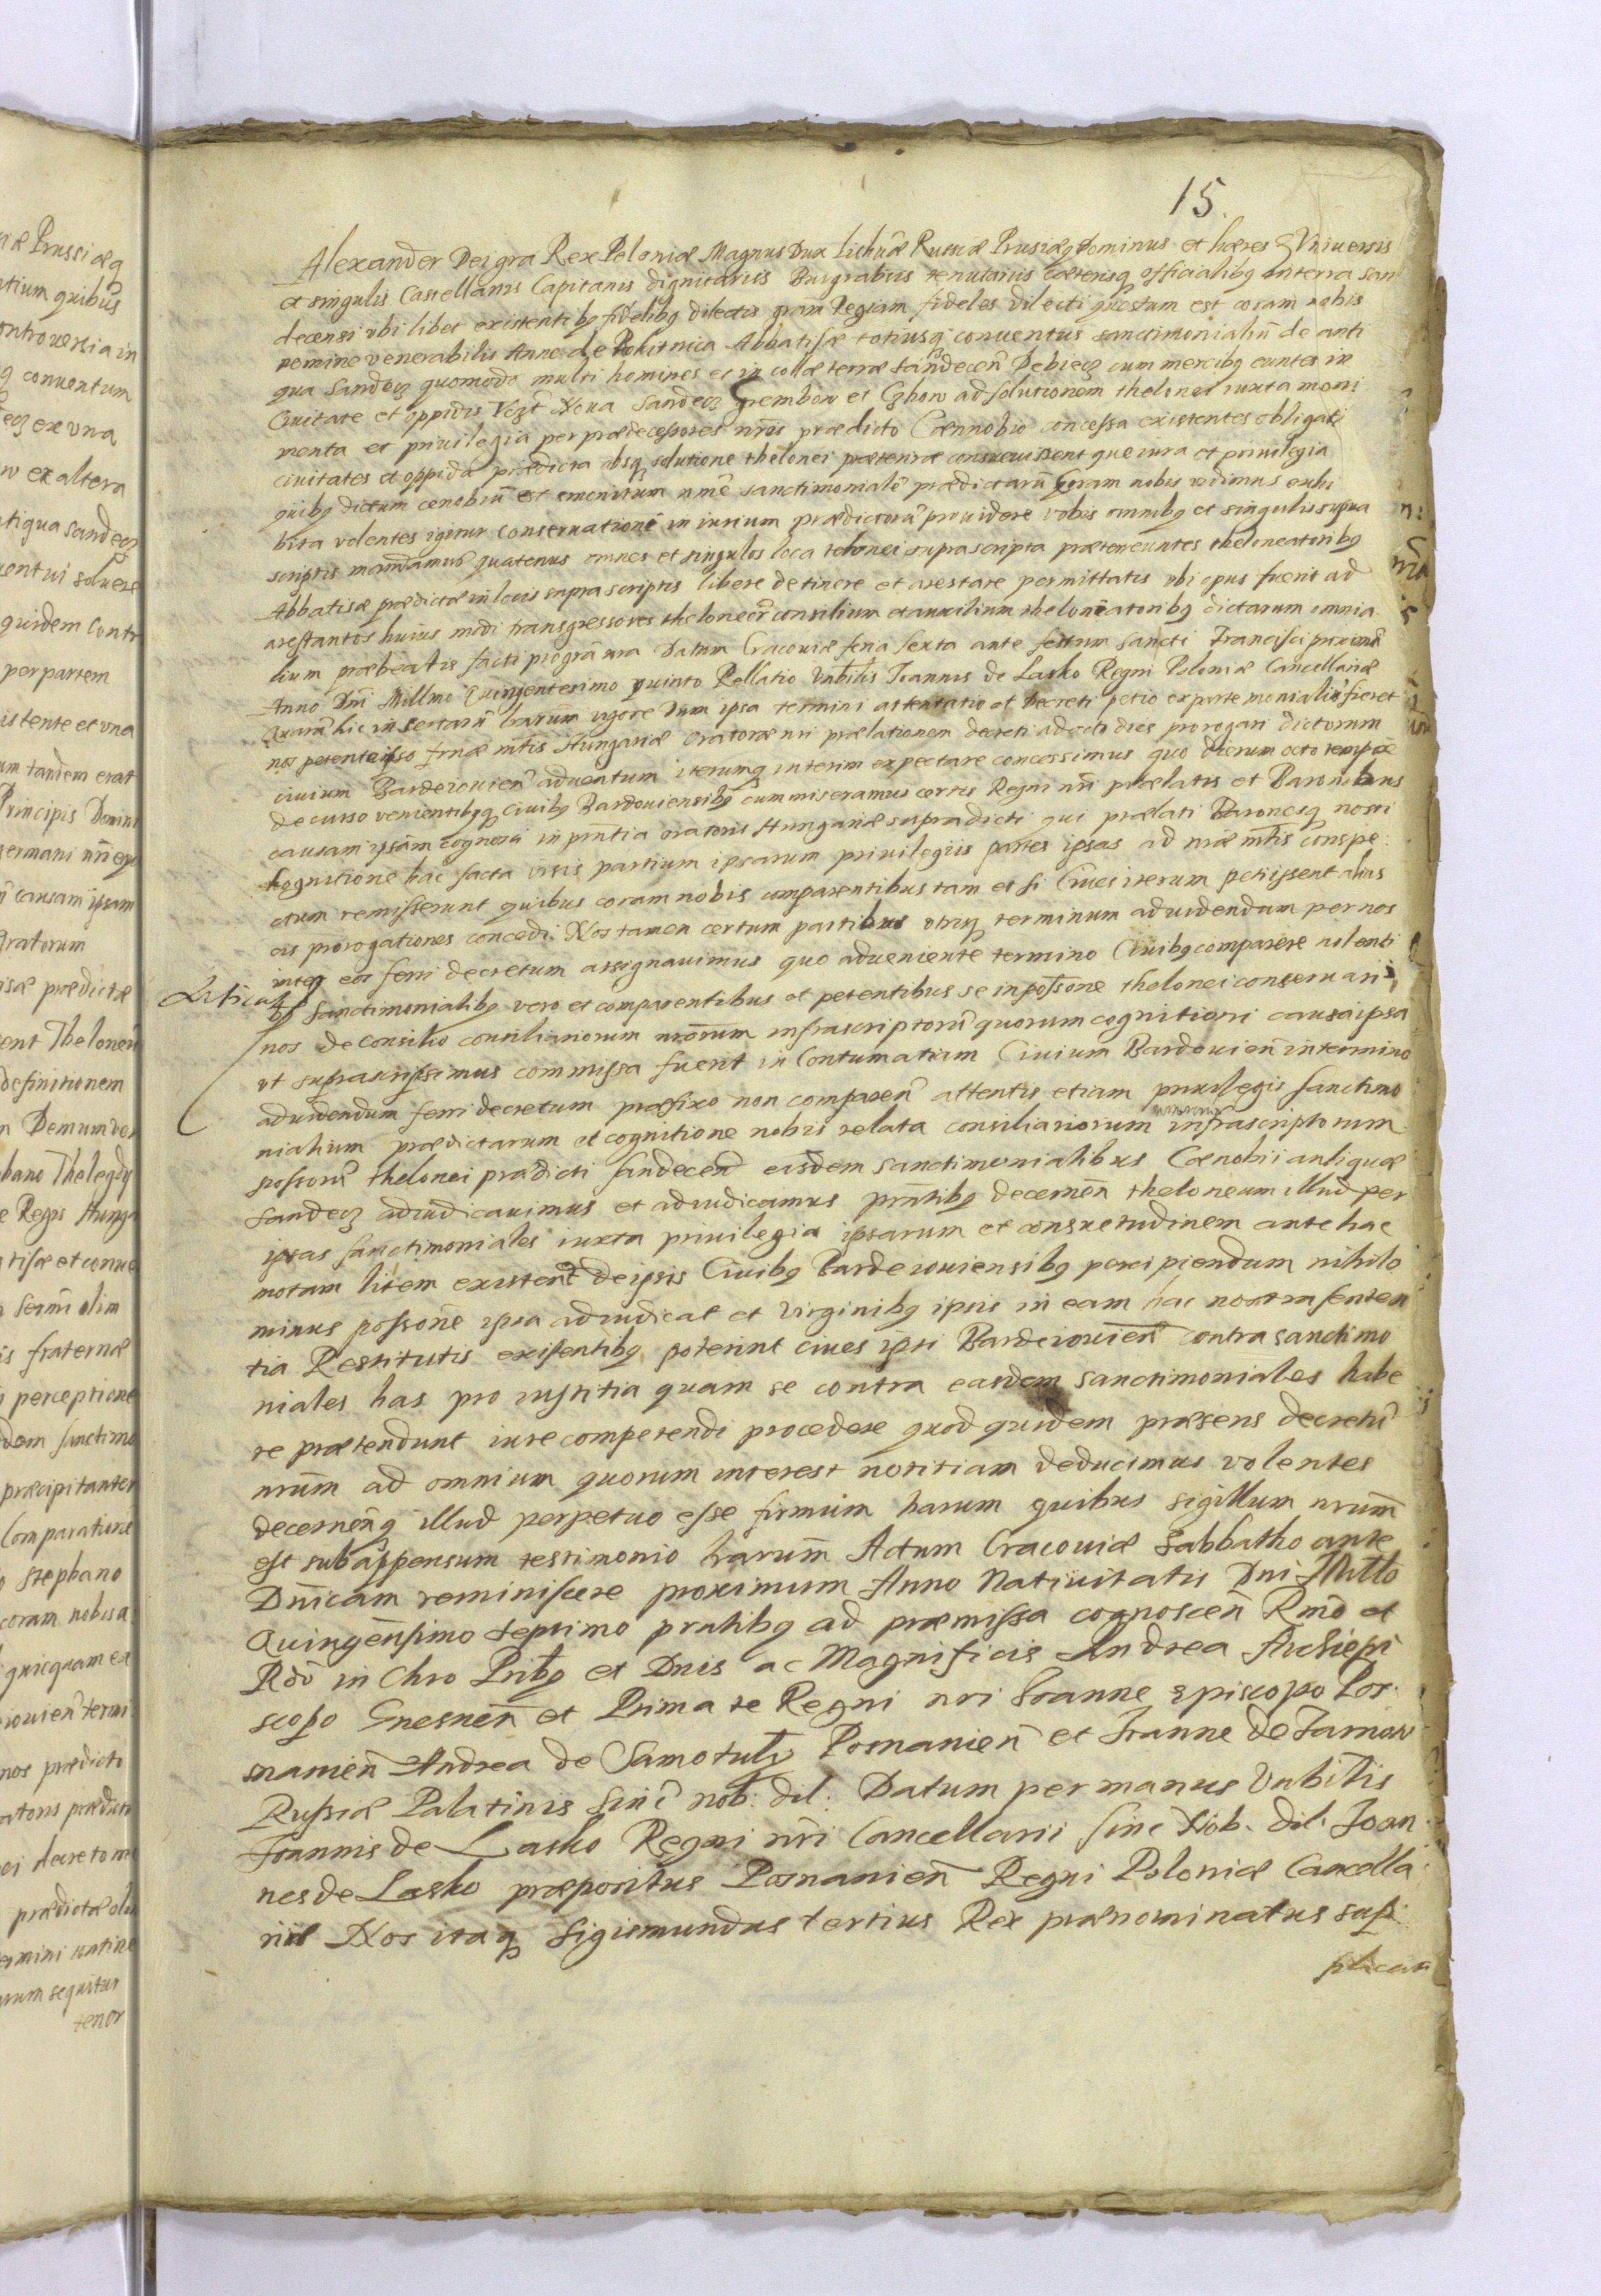 15.
Alexander Dei gra Rex Poloniæ Magnus Dux Lithuæ Russiæ Prusiæq Dominus et hæres Vniuersis
et singulis Castellanis Capitaneis dignitariis Burgrabiis tenutariis cæterisq officialibq in terra San
decensi vbi libet existentibq fidelibq dilectis gram Regiam fideles dilecti quæstum est coram nobis
nomine venerabilis Anne de Pokitnica Abbatisæ totiusq conuentus sanctimonialiu de anti
qua Sandecz quomodo multi homines et in colæ terræ Sandecen Debiecz cum mercibq euntes in
Ciuitate et oppidis Vezt Noua Sandecz Grembow et Czhow ad solutionem thelonei iuxta moni
menta et priuilegia per prædecessores nros prædicto Cœnnobio concessa existentes obligati
ciuitates et oppida prædicta absq solutione thelonei præterire consueuissent que iura et priuilegia
quibq dictum cenobiu et emunitum nme sanctimoniale prædictaru coram nobis vidimus exhi
bita volentes igitur conseruatione in iurium prædictoru prouidere vobis omnibq et singulis supra
scriptis mandamus quatenus omnes et singulos loca telonei suprascripta prætereuntes theloneatoribq
Abbatisæ prædictæ in locis suprascriptis libere detinere et arestare permittatis vbi opus fuerit ad
arestantos huius modi transgressores theloneor consilium et auxilium theloneatoribq dictarum omnia
lium præbeatis facti pro gra nra Datum Cracouiæ feria sexta ante festum Sancti Francisci proxima
Anno Dni Millmo Quingentesimo quinto Rellatio Vnbilis Joannis de Lasko Regni Poloniæ Cancellariæ
Quaru hic insertaru lrarum vigore Dum ipsa termini attentatio et decreti petio ex parte monialiu fieret
nos petente ipso srnæ mtis Hungariæ Oratoræ nri prælationem decreti ad octo dies prorogari dictorum
ciuium Bardeiouien aduentum iterumq interim expectare concessimus quo dierum octo tempore
decurso venientibqq Ciuibq Bardouiensibq cum miseramus certis Regni nri prælatis et Baronibus
causam ipsam cognosci in prntia oratoris Hungariæ supradicti qui prælati Baronesq nostri
Cognitione hac facta visis partium ipsarum priuilegiis partes ipsas ad nræ mtis conspe:
ctum remisserunt quibus coram nobis comparentibus tam et si Ciues iterum petiissent alias
eis prorogationes concedi. Nos tamen certum partibus vtrisq terminum aduidendum per nos
inter eos ferri decretum assignauimus quo adueniente termino Ciuibq comparere nolenti
bq Sanctimonialibq vero et comparentibus et petentibus se in possone thelonei conseruari
nos de Consilio consiliariorum nrorum infrascriptoru quorum cognitioni causa ipsa
vt suprascripsimus commissa fuerit in Contumatiam Ciuium Bardouien in termino
aduidendum ferri decretum præfixo non comparen attentis etiam priuilegiis Sanctimo
nialium prædictarum et cognitione nobis relata consiliariorum infrascriptorum
possoru thelonei prædicti Sandecen eisdem sanctimonialibus Cœnobii antiquæ
Sandecz adiudicauimus et adiudicamus prntibq decernen theloneum illud per
ipsas sanctimoniales iuxta priuilegia ipsarum et consuetudinem ante hac
motam litem existent de ipsis Ciuibq Bardeiouiensibq percipiendum nihilo
minus possone ipsa adiudicat et Virginibq ipsis in eam hac nostra senten
tia Restitutis existentibq poterint ciues ipsi Bardeiouien contra sanctimo
niales has pro iustitia quam se contra easdem sanctimoniales habe
re prætendunt iure competendi procedere quod quidem præsens decretu
nrum ad omnium quorum interest notitiam deducimus volentes
decernenq illud perpetuo esse firmum harum quibus sigillum nrum
est subappensum testimonio lrarum Actum Cracouiæ Sabbatho ante
Dnicam reminiscere proximum Anno Natiuitatis Dni Millo
Quingensimo septimo prntibq ad præmissa cognoscen Rmo et
Rdo in Chro Pribq et Dnis ac Magnificis Andrea Archiepi
scopo Gnesnen et Primate Regni nri Joanne episcopo Pos:
nanien Andrea de Samotulq Posnanien et Joanne de Tarnow
Russiæ Palatinis sinc nob: dil: Datum per manus Vnbilis
Joannis de Lasko Regni nri Cancellarii sinc Nob. dil. Joan
nes de Lasko præpositus Posnanien Regni Poloniæ Cancella
riæ Nos itaq Sigismundus tertius Rex prænominatus sup:
plican